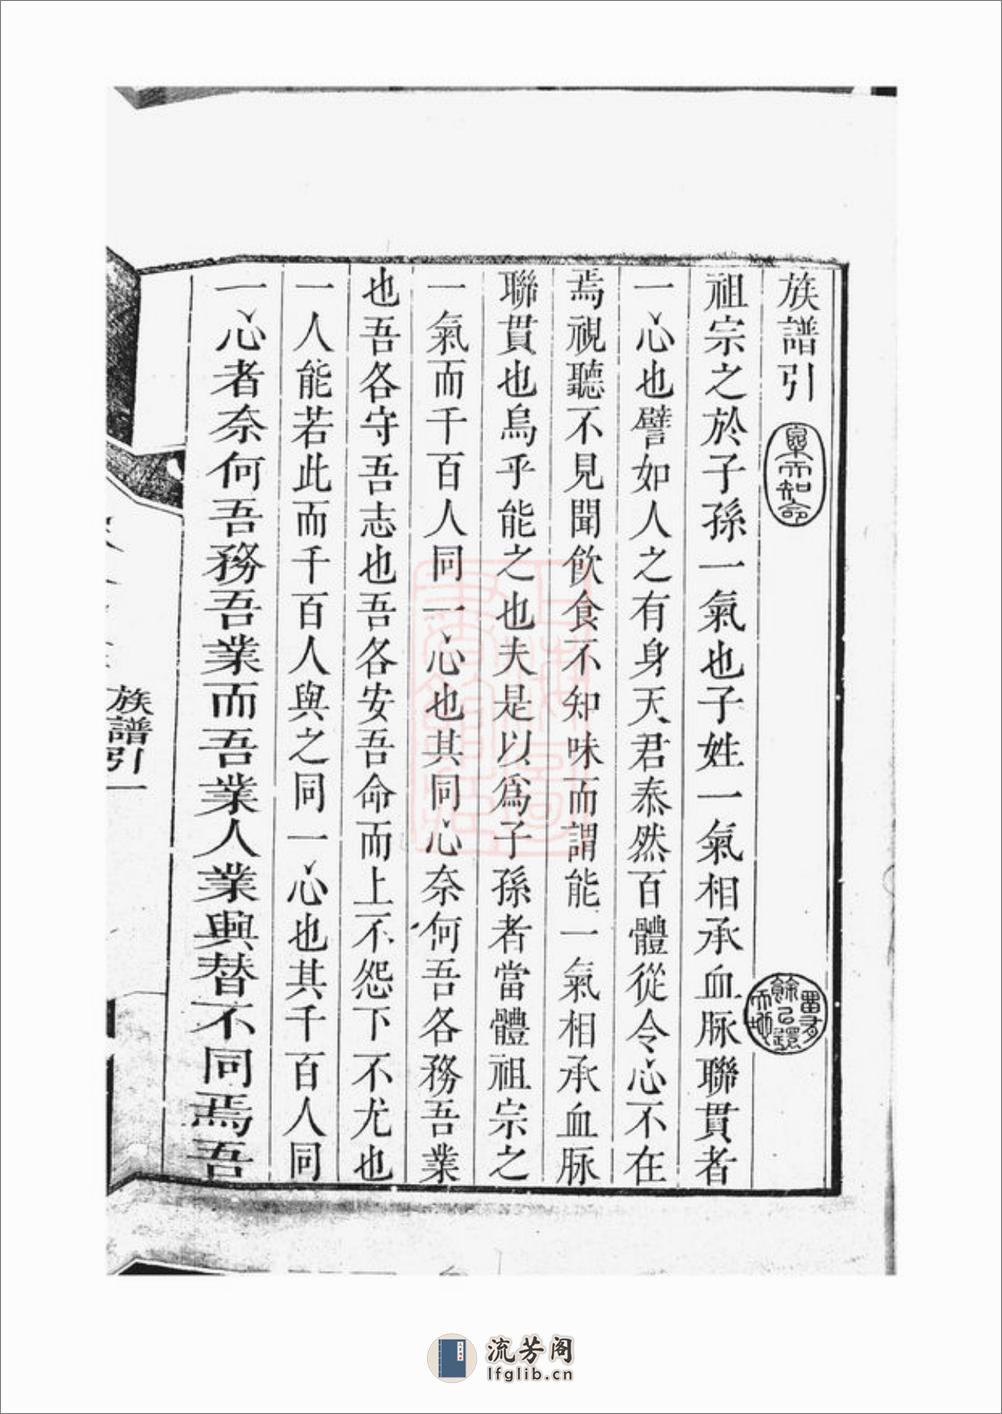 族譜引
祖宗之於子孫一氣也子姓一氣相承血脉聯貫者
一心也譬如人之有身天君泰然百體從令心不在
焉視聽不見聞飲食不知味而謂能一氣相承血脉
聯貫也烏乎能之也夫是以爲子孫者當體祖宗之
一氣而千百人同一心也其同心奈何吾各務吾業
也吾各守吾志也吾各安吾命而上不怨下不尤也
一人能若此而千百人與之同一心也其千百人同
一心者奈何吾務吾業而吾業人業興替不同焉吾
族譜引一
流芳阁
lfglib.cn